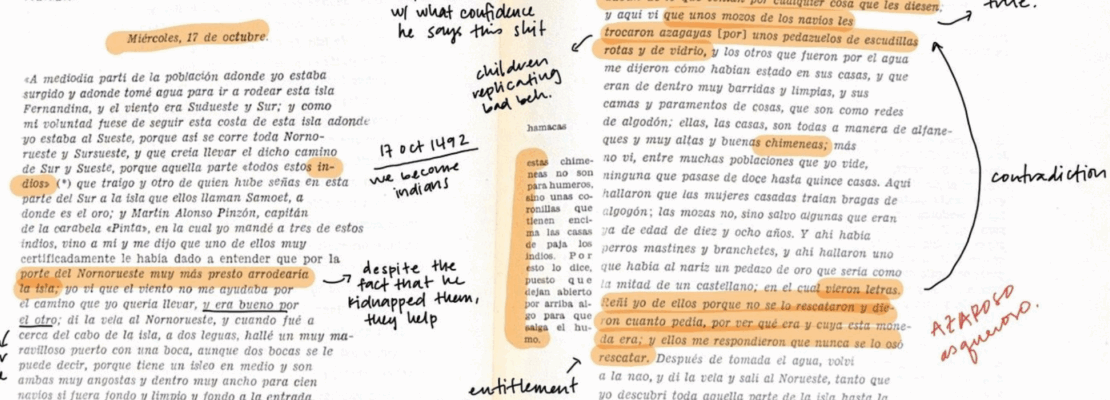 w/ what confidence
he says this shit
Miércoles, 17 de octubre.
«A mediodía partí de la población adonde yo estaba
surgido y adonde tomé agua para ir a rodear esta isla
Fernandina, y el viento era Sudueste y Sur; y como
mi voluntad fuese de seguir esta costa de esta isla adonde
yo estaba al Sueste, porque así se corre toda Norno-
rueste y Sursueste, y que creía llevar el dicho camino
de Sur y Sueste, porque aquella parte «todos estos in-
dios» (*) que traigo y otro de quien hube señas en esta
parte del Sur a la isla que ellos llaman Samoet, a
donde es el oro; y Martín Alonso Pinzón, capitán
de la carabela «Pinta», en la cual yo mandé a tres de estos
indios, vino a mí y me dijo que uno de ellos muy
certificadamente le había dado a entender que por la
porte del Nornorueste muy más presto arrodearía
la isla; yo vi que el viento no me ayudaba por
el camino que yo quería llevar, y era bueno por
el otro; di la vela al Nornorueste, y cuando fué a
cerca del cabo de la isla, a dos leguas, hallé un muy ma-
ravilloso puerto con una boca, aunque dos bocas se le
puede decir, porque tiene un isleo en medio y son
ambas muy angostas y dentro muy ancho para cien
navíos si fuera fondo y limpio y fondo a la entrada
17 oct 1492
we become
indians
despite the
fact that he
kidnapped them,
they help
children
replicating
bad beh.
hamacas
estas chime-
neas no son
para humeros,
sino unas co-
ronillas que
tienen enci-
ma las casas
de paja los
indios. Por
esto lo dice,
puesto que
dejan abierto
por arriba al-
go para que
salga el hu-
mo.
entitlement
por cualquier cosa que les diesen;
y aquí vi que unos mozos de los navíos les
trocaron azagayas [por] unos pedazuelos de escudillas
rotas y de vidrio, y los otros que fueron por el agua
me dijeron cómo habían estado en sus casas, y que
eran de dentro muy barridas y limpias, y sus
camas y paramentos de cosas, que son como redes
de algodón; ellas, las casas, son todas a manera de alfane-
ques y muy altas y buenas chimeneas; más
no vi, entre muchas poblaciones que yo vide,
ninguna que pasase de doce hasta quince casas. Aquí
hallaron que las mujeres casadas traían bragas de
algogón; las mozas no, sino salvo algunas que eran
ya de edad de diez y ocho años. Y ahí había
perros mastines y branchetes, y ahí hallaron uno
que había al nariz un pedazo de oro que sería como
la mitad de un castellano; en el cual vieron letras.
Reñí yo de ellos porque no se lo rescataron y die-
ron cuanto pedía, por ver qué era y cuya esta mone-
da era; y ellos me respondieron que nunca se lo osó
rescatar. Después de tomada el agua, volví
a la nao, y di la vela y salí al Norueste, tanto que
yo descubrí toda aquella parte de la isla hasta la
true.
contradiction
AZAROSO
asqueroso.